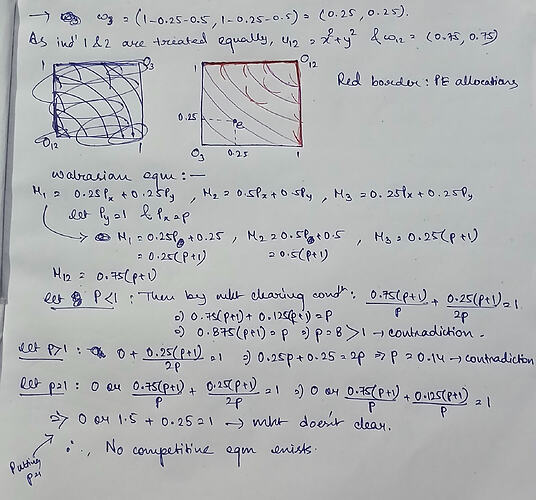 → ω₃ = (1-0.25-0.5, 1-0.25-0.5) = (0.25, 0.25).
As ind' 1 & 2 are treated equally, u₁₂ = x²+y² & ω₁₂ = (0.75, 0.75)
1 O₃
O₁₂ 1
1 O₁₂
0.25 e
O₃ 0.25 1
Red border: PE allocations
Walrasian eqm :—
M₁ = 0.25Pₓ + 0.25Py , M₂ = 0.5Pₓ + 0.5Py , M₃ = 0.25Pₓ + 0.25Py
let Py=1 & Pₓ=p
→ M₁ = 0.25p + 0.25 , M₂ = 0.5p + 0.5 , M₃ = 0.25(p+1)
= 0.25(p+1) = 0.5(p+1)
M₁₂ = 0.75(p+1)
let P<1 : Then by mkt clearing condⁿ: 0.75(p+1)/p + 0.25(p+1)/2p = 1.
⇒ 0.75(p+1) + 0.125(p+1) = p
⇒ 0.875(p+1) = p ⇒ p = 8 > 1 → contradiction.
let p>1 : 0 + 0.25(p+1)/2p = 1 ⇒ 0.25p + 0.25 = 2p ⇒ P = 0.14 → contradiction
let p=1 : 0 or 0.75(p+1)/p + 0.25(p+1)/2p = 1 ⇒ 0 or 0.75(p+1)/p + 0.125(p+1)/p = 1
⇒ 0 or 1.5 + 0.25 = 1 → mkt doesn't clear.
Putting p=1
∴, No competitive eqm exists.